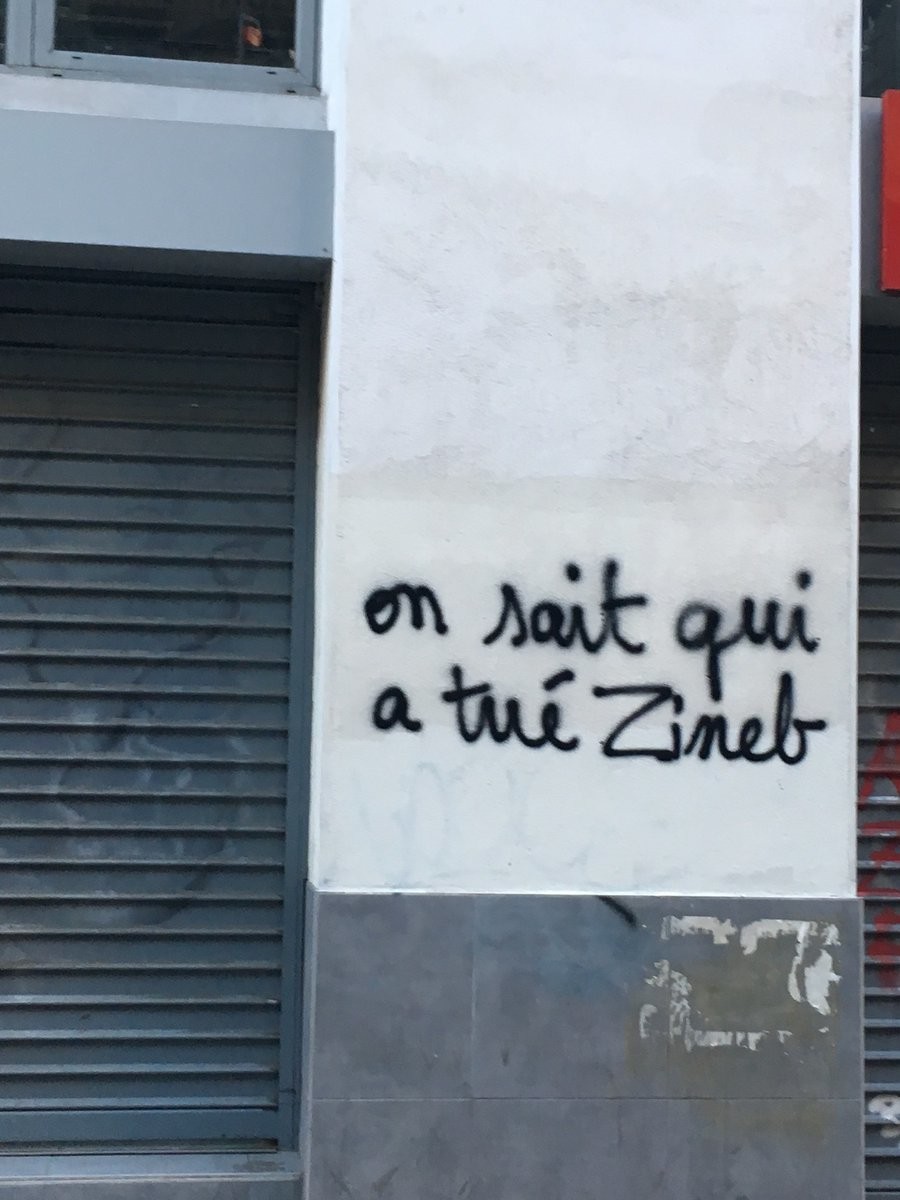 on sait qui
a tué Zineb